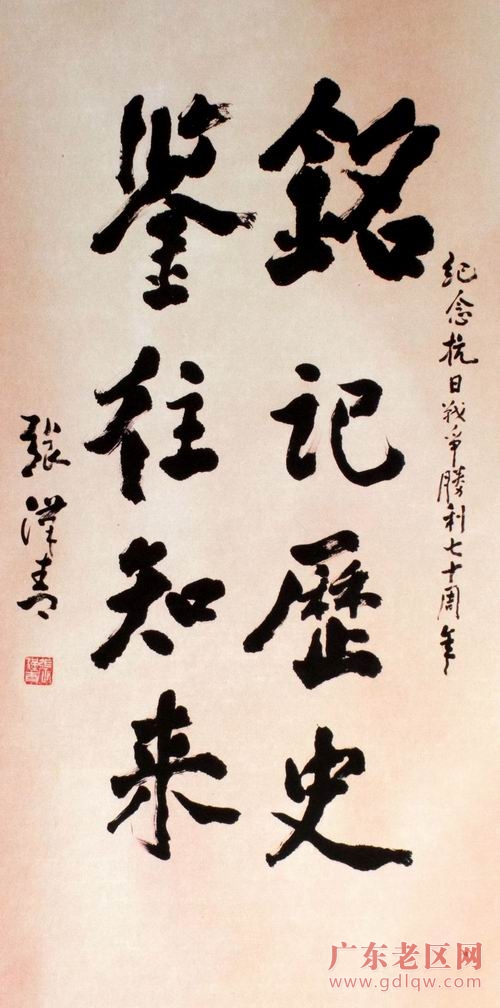 纪念抗日战争勝利七十周年
銘记歷史
鉴往知来
張漢青
广东老区网
www.gdlqw.com